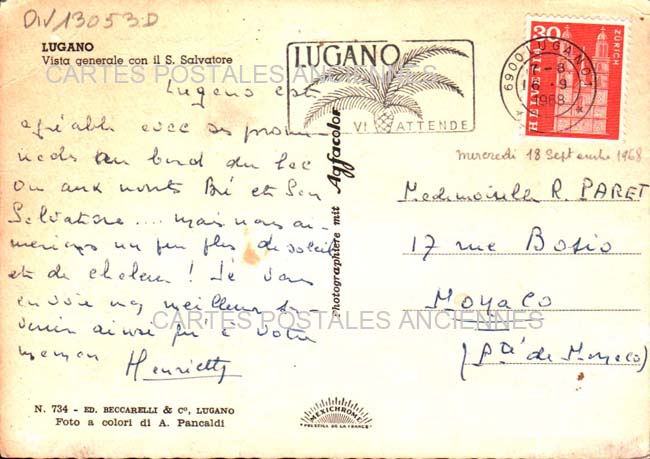 DIV/13053.D
LUGANO
Vista generale con il S. Salvatore
CARTES POSTALES ANCIENNES
Lugano est
agréable avec ses prome
nades au bord du lac
ou aux monts Bré et San
Salvatore .... mais nous ai-
merions un peu plus de soleil
et de chaleur ! Je vous
envoie mes meilleurs sou-
venirs ainsi qu'à votre
maman
Henriette
N. 734 - ED. BECCARELLI & Cº, LUGANO
Foto a colori di A. Pancaldi
Photographiere mit Agfacolor
MEXICHROME
LUGANO
VI ATTENDE
6900 LUGANO 1
7-8
16.-9
1968
30
HELVETIA
ZÜRICH
mercredi 18 Septembre 1968
Mademoiselle R. PARET
17 rue Bosio
Monaco
CARTES POSTALES ANCIENNES
(Pté de Monaco)